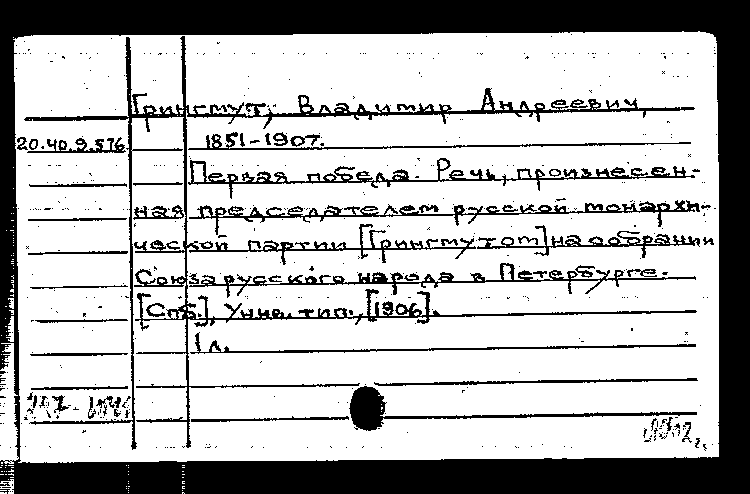 Грингмут, Владимир Андреевич,
20.40.9.576 1851-1907.
Первая победа. Речь, произнесен-
ная председателем русской монархи-
ческой партии [Грингмутом] на собрании
Союза русского народа в Петербурге.
[Спб.], Унив. тип., [1906].
1 л.